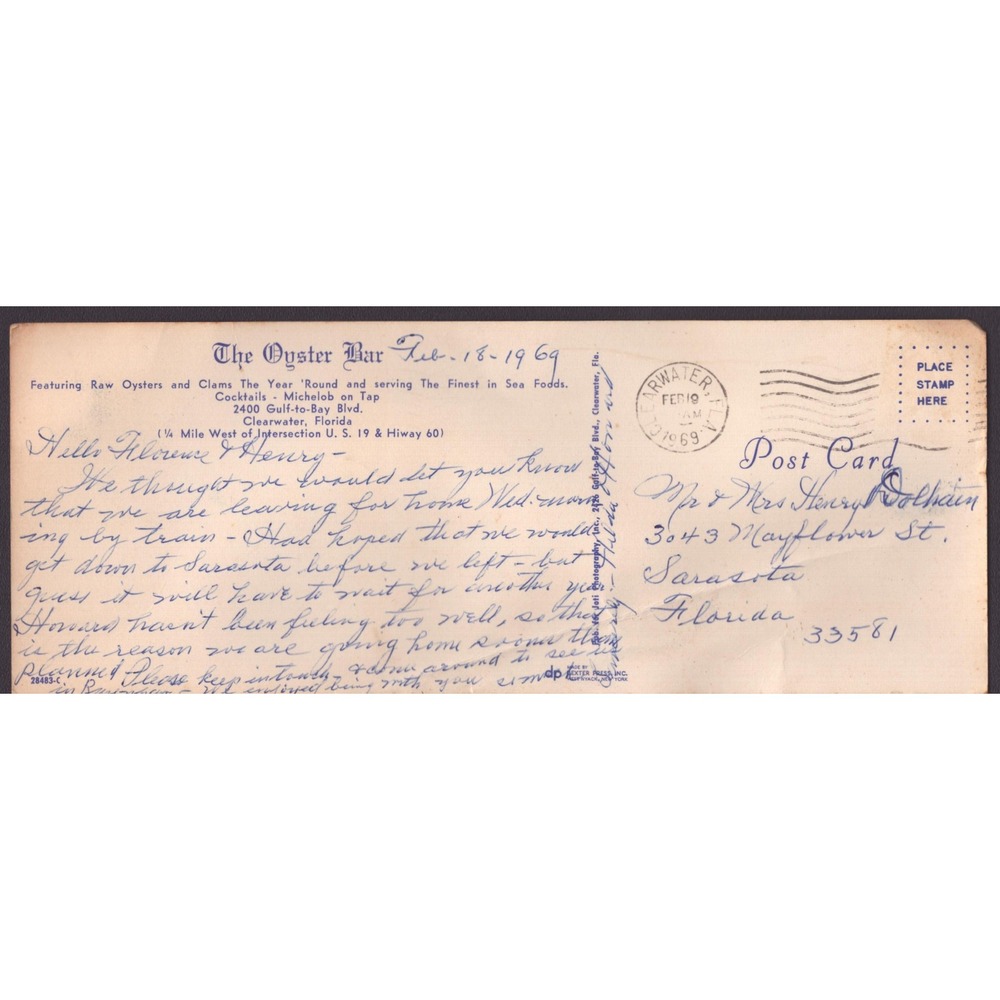 The Oyster Bar Feb-18-1969
Featuring Raw Oysters and Clams The Year 'Round and serving The Finest in Sea Foods.
Cocktails - Michelob on Tap
2400 Gulf-to-Bay Blvd.
Clearwater, Florida
(¼ Mile West of Intersection U. S. 19 & Hiway 60)
Hello Florence & Henry-
We thought we would let you know
that we are leaving for home Wed. morn
ing by train - Had hoped that we would
get down to Sarasota before we left - but
guess it will have to wait for another year
Howard hasn't been feeling too well, so this
is the reason we are going home sooner than
planned Please keep in touch & come around to see us
in - We enjoyed being with you
28483-C
Sincerely - Hilda & Howard
Photography, Inc., Gulf-to-Bay Blvd., Clearwater, Fla.
dp MADE BY
DEXTER PRESS, INC.
WEST NYACK, NEW YORK
CLEARWATER, FLA.
FEB 19
AM
1969
PLACE
STAMP
HERE
Post Card
Mr & Mrs Henry Dolhain
3043 Mayflower St.
Sarasota
Florida
33581